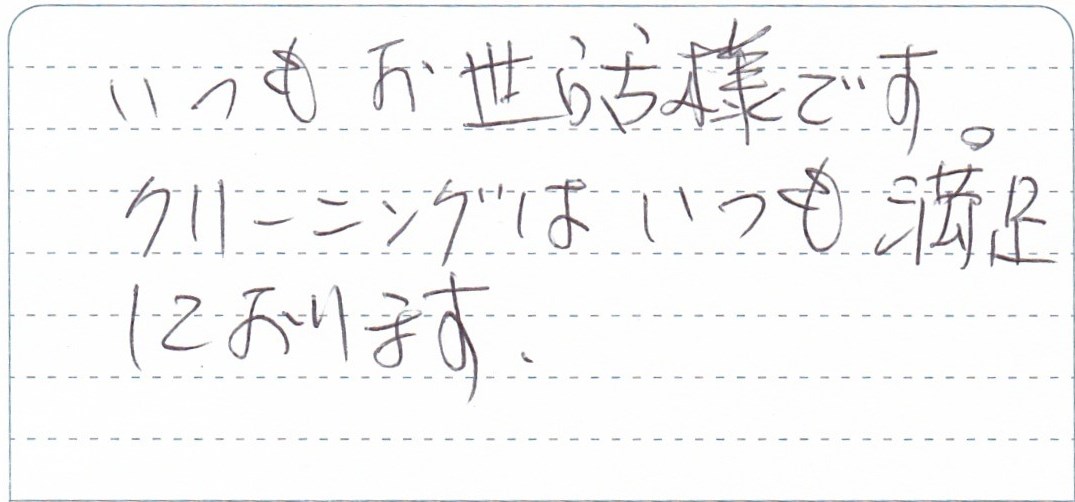 いつもお世話様です。
クリーニングはいつも満足
におります.